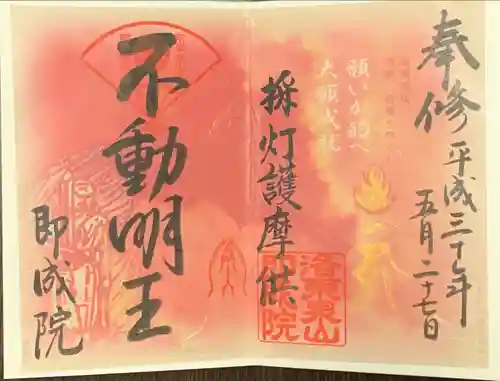 奉修
平成三十年
五月二十七日
願いが的へ
大願成就
採灯護摩供
不動明王
即成院